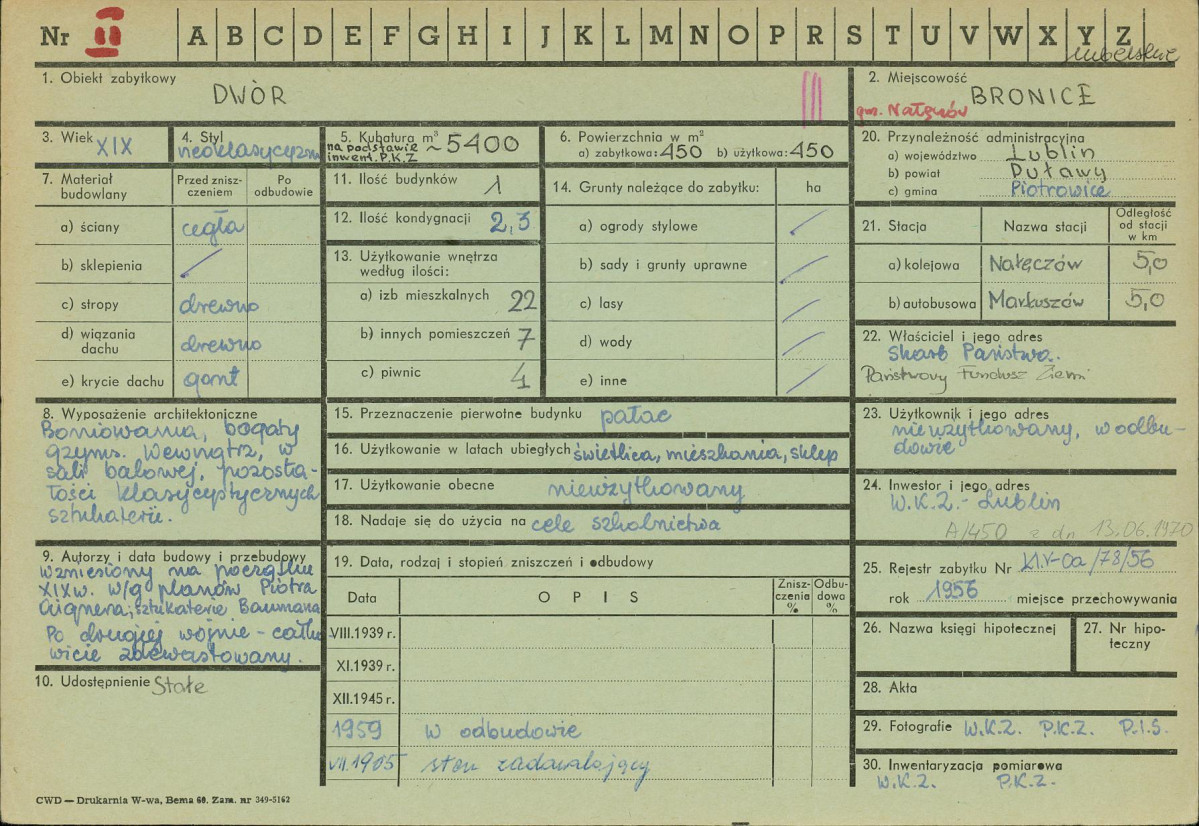 Nr II A B C D E F G H I J K L M N O P R S T U V W X Y Z
lubelskie
1. Obiekt zabytkowy
DWÓR
2. Miejscowość
BRONICE
gm. Nałęczów
3. Wiek XIX
4. Styl
neoklasycyzm
5. Kubatura m³ ~5400
na podstawie
inwent. P.K.Z
6. Powierzchnia w m²
a) zabytkowa: 450 b) użytkowa: 450
20. Przynależność administracyjna
a) województwo Lublin
b) powiat Puławy
c) gmina Piotrowice
7. Materiał budowlany
Przed zniszczeniem
Po odbudowie
a) ściany cegła
b) sklepienia /
c) stropy drewno
d) wiązania dachu drewno
e) krycie dachu gont
11. Ilość budynków 1
12. Ilość kondygnacji 2,3
13. Użytkowanie wnętrza
według ilości:
a) izb mieszkalnych 22
b) innych pomieszczeń 7
c) piwnic 4
14. Grunty należące do zabytku: ha
a) ogrody stylowe /
b) sady i grunty uprawne /
c) lasy /
d) wody /
e) inne /
21. Stacja
Nazwa stacji
Odległość
od stacji
w km
a) kolejowa Nałęczów 5,0
b) autobusowa Markuszów 5,0
22. Właściciel i jego adres
Skarb Państwa.
Państwowy Fundusz Ziemi
8. Wyposażenie architektoniczne
Boniowania, bogaty
gzyms. Wewnątrz, w
sali balowej, pozosta-
łości klasycystycznych
sztukaterii.
15. Przeznaczenie pierwotne budynku pałac
16. Użytkowanie w latach ubiegłych świetlica, mieszkania, sklep
17. Użytkowanie obecne nieużytkowany
18. Nadaje się do użycia na cele szkolnictwa
23. Użytkownik i jego adres
nieużytkowany, w odbu-
dowie
24. Inwestor i jego adres
W.K.Z. - Lublin
A/450 z dn 13.06.1970
9. Autorzy i data budowy i przebudowy
wzniesiony na początku
XIX w. w/g planów Piotra
Aignera; sztukaterie Baumana
Po drugiej wojnie - całko
wicie zdewastowany.
10. Udostępnienie Stałe
19. Data, rodzaj i stopień zniszczeń i odbudowy
Data
OPIS
Zniszczenia %
Odbudowa %
VIII.1939 r.
XI.1939 r.
XII.1945 r.
1959 w odbudowie
VII.1965 stan zadawalający
25. Rejestr zabytku Nr Kl.V-Oa/78/56
rok 1956 miejsce przechowywania
26. Nazwa księgi hipotecznej
27. Nr hipo-
teczny
28. Akta
29. Fotografie W.K.Z. P.K.Z. P.I.S.
30. Inwentaryzacja pomiarowa
W.K.Z. P.K.Z.
CWD — Drukarnia W-wa, Bema 60. Zam. nr 349-5162